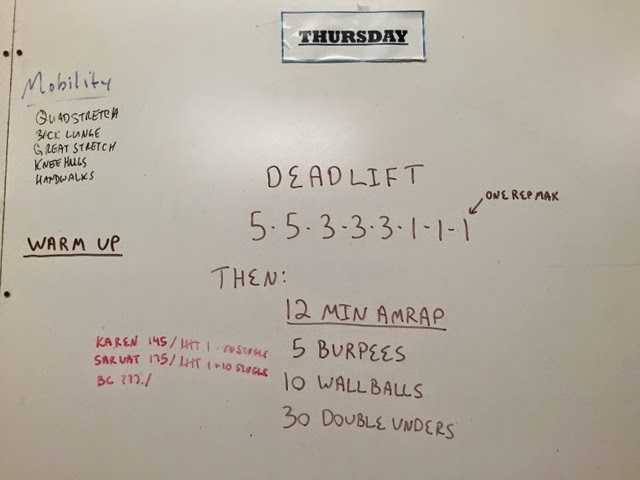 THURSDAY
Mobility
QUADSTRETCH
BACK LUNGE
GREAT STRETCH
KNEE HUGS
HANDWALKS
DEADLIFT
ONE REP MAX
5-5-3-3-3-1-1-1
WARM UP
THEN:
12 MIN AMRAP
5 BURPEES
10 WALLBALLS
30 DOUBLE UNDERS
KAREN 145/
SARVAT 175/
BC ???/